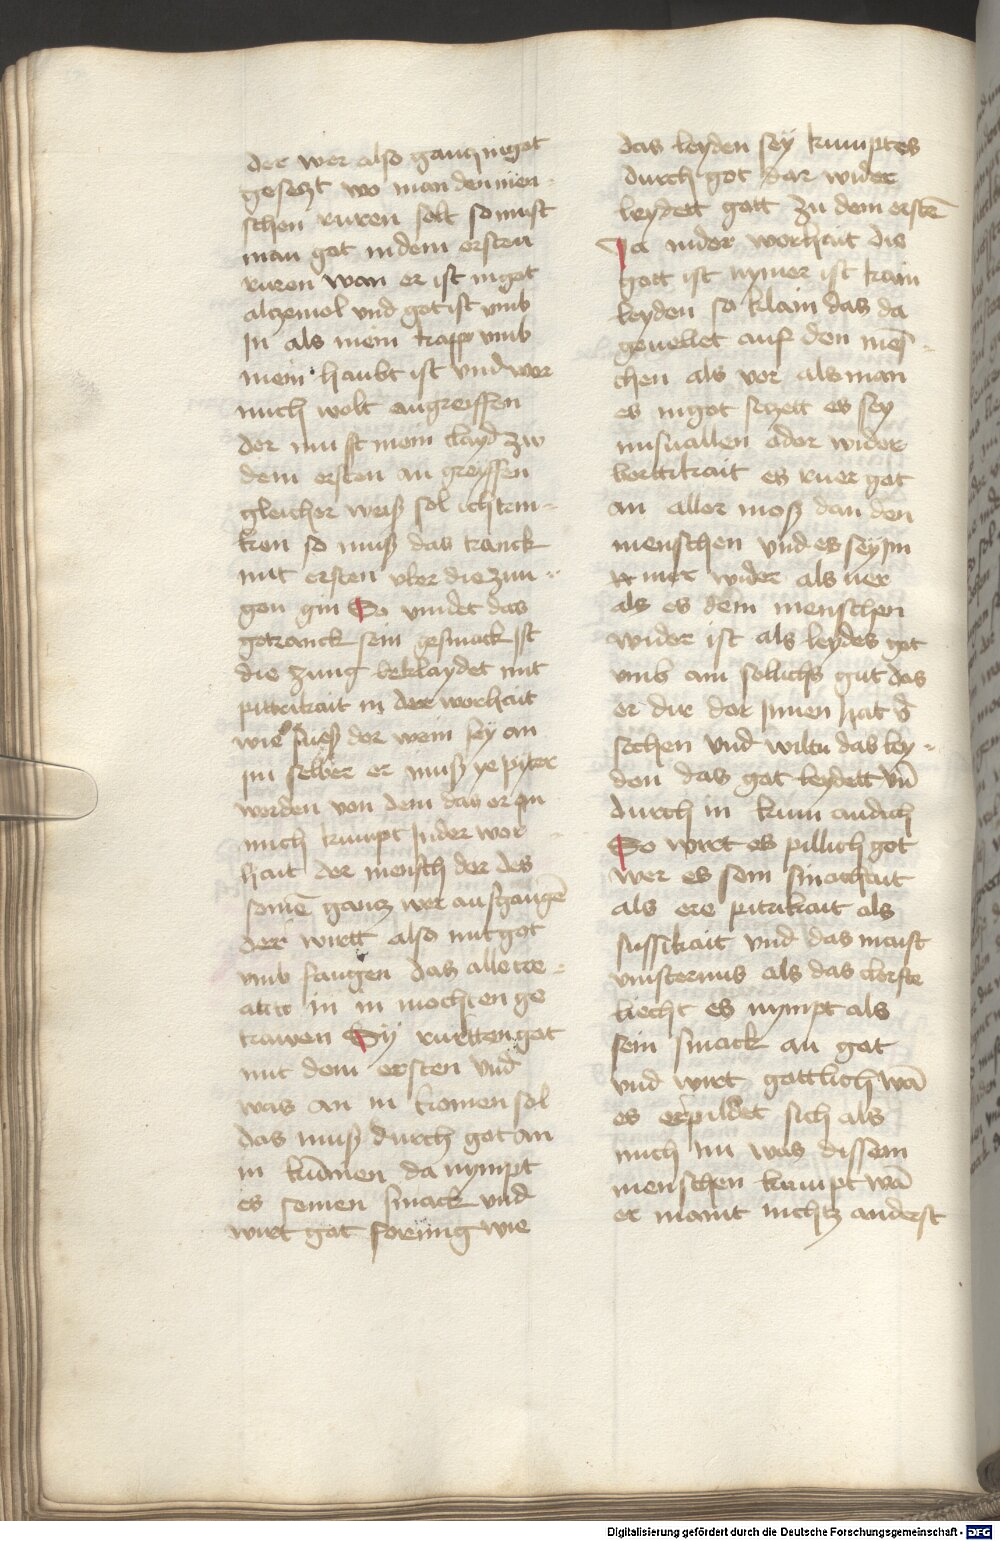 der wer also gantz in got
gesetzt wo man den men-
schen ruren solt so must
man got in dem ersten
ruren wan er ist in got
alczemol vnd got ist vmb
in als mein kapp vmb
mein haubt ist vnd wer
mich wolt angreiffen
der must mein clayd zw
dem ersten an greyffen
gleicher weiß sol ich trin-
ken so muß das tranck
mit ersten vber die zun-
gen gin So vindet das
getranck sein gesmack Ist
die zung beklaydet mit
pittrikait in der worhait
wie sueß der wein sey an
im selber er muß ye pyter
werden von dem das er an
mich kumpt In der wor-
hait der mensch der des
seinē gantz wer ausgangē
der wirtt also mit got
vmb fangen das alle cre-
atur in in mochten ge
trawen Sÿ rurtten got
mit dem ersten vnd
was an in komen sol
das muß durch got an
in kumen da nympt
es seinen smack vnd
wirt got formig wie
das leyden seÿ kumpt es
durch got dar wider
leydett gott zu dem erstē
Ja in der worhait die
gott ist nymer ist kain
leyden so klain das da
geuellet auf den mēs-
chen als ver als man
es in got setzett es sey
misuallen oder wider
berttikait es ruer got
an aller moß dan den
menschen vnd es seÿ im
mer wider als ver
als es dem menschen
wider ist als leydes got
vmb ain sollichs gut das
er dir dor Innen hat v̄
sechen vnd wiltu das ley-
den das got leydett vn̄
durch in kum an dich
So wirt es pillich got
wer es sem smachait
als ere pitrikait als
sussikait vnd das maist
vinsternus als das clerste
liecht es nympt als
sein smack an got
vnd wirt gottlich wā
es erpildet sich als
mich in was dissem
menschen kumpt wā
er maint nichtz anderst
Digitalisierung gefördert durch die Deutsche Forschungsgemeinschaft - DFG